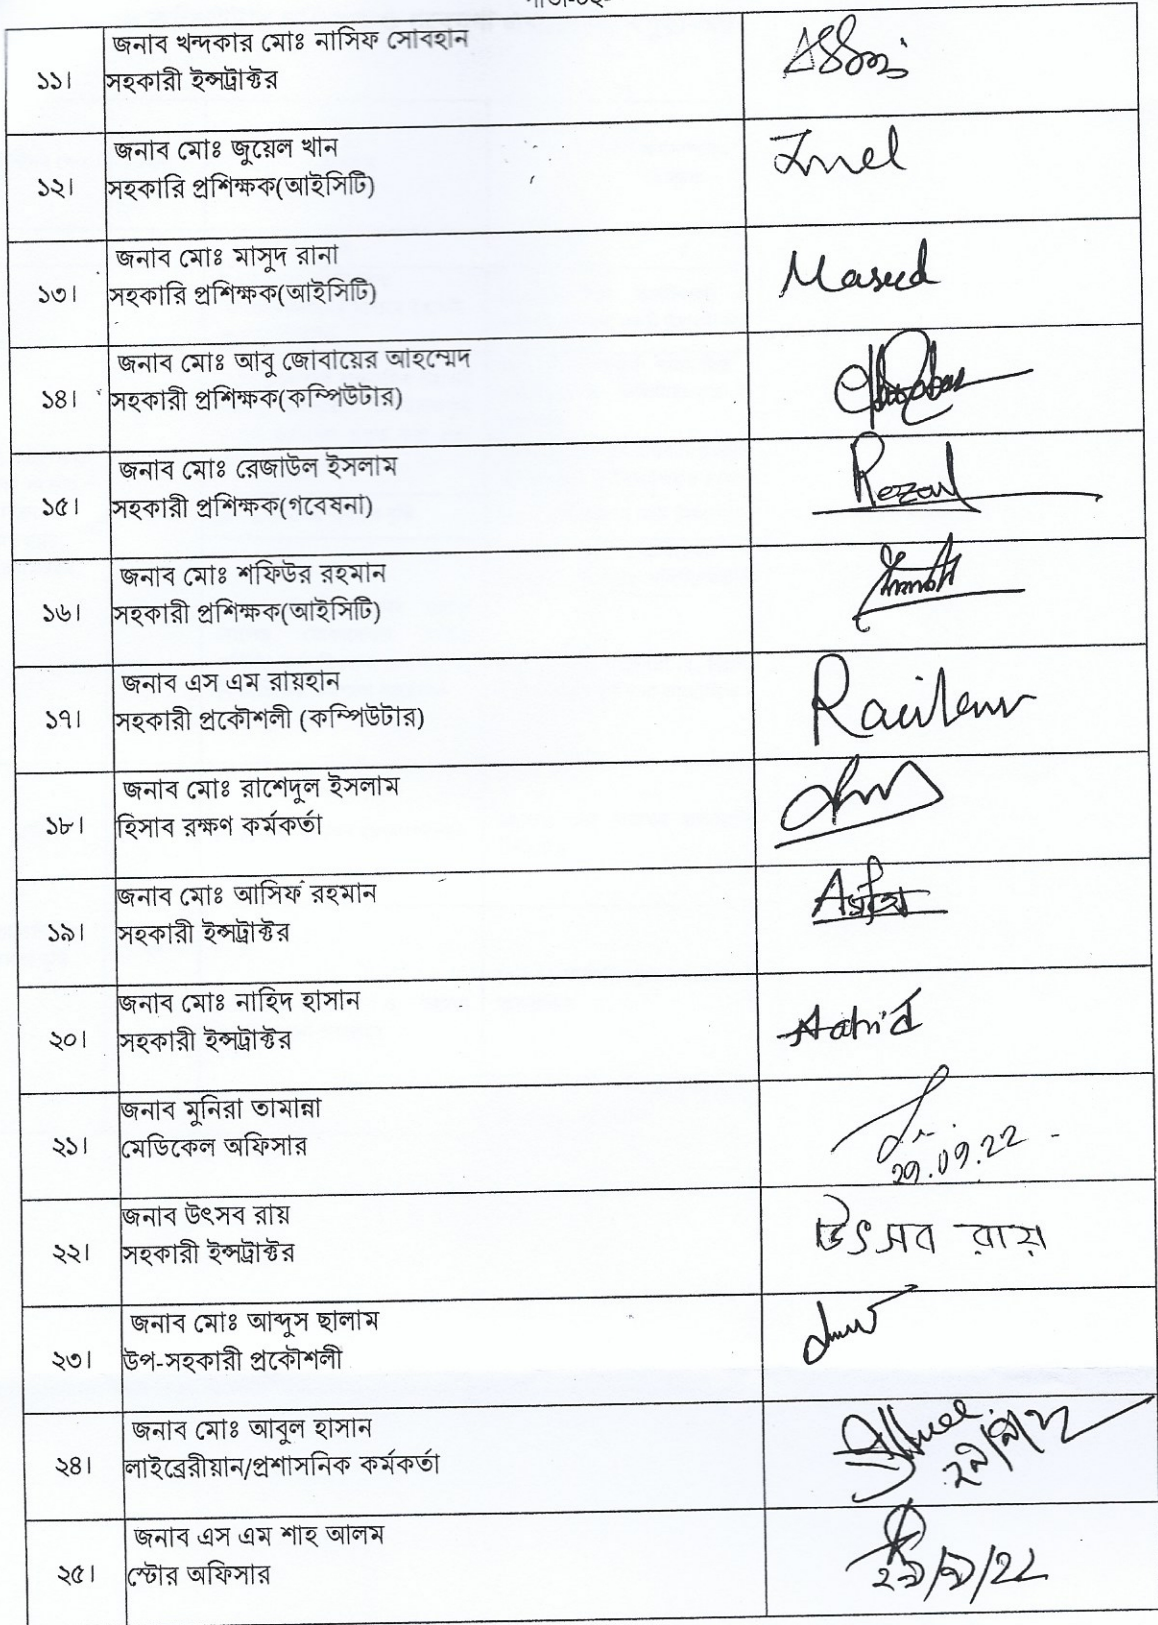 ১১।
জনাব খন্দকার মোঃ নাসিফ সোবহান
সহকারী ইন্সট্রাক্টর
১২।
জনাব মোঃ জুয়েল খান
সহকারি প্রশিক্ষক(আইসিটি)
১৩।
জনাব মোঃ মাসুদ রানা
সহকারি প্রশিক্ষক(আইসিটি)
Masud
১৪।
জনাব মোঃ আবু জোবায়ের আহম্মেদ
সহকারী প্রশিক্ষক(কম্পিউটার)
১৫।
জনাব মোঃ রেজাউল ইসলাম
সহকারী প্রশিক্ষক(গবেষনা)
১৬।
জনাব মোঃ শফিউর রহমান
সহকারী প্রশিক্ষক(আইসিটি)
১৭।
জনাব এস এম রায়হান
সহকারী প্রকৌশলী (কম্পিউটার)
১৮।
জনাব মোঃ রাশেদুল ইসলাম
হিসাব রক্ষণ কর্মকর্তা
১৯।
জনাব মোঃ আসিফ রহমান
সহকারী ইন্সট্রাক্টর
২০।
জনাব মোঃ নাহিদ হাসান
সহকারী ইন্সট্রাক্টর
২১।
জনাব মুনিরা তামান্না
মেডিকেল অফিসার
২২।
জনাব উৎসব রায়
সহকারী ইন্সট্রাক্টর
উৎসব রায়
২৩।
জনাব মোঃ আব্দুস ছালাম
উপ-সহকারী প্রকৌশলী
২৪।
জনাব মোঃ আবুল হাসান
লাইব্রেরীয়ান/প্রশাসনিক কর্মকর্তা
২৫।
জনাব এস এম শাহ আলম
স্টোর অফিসার